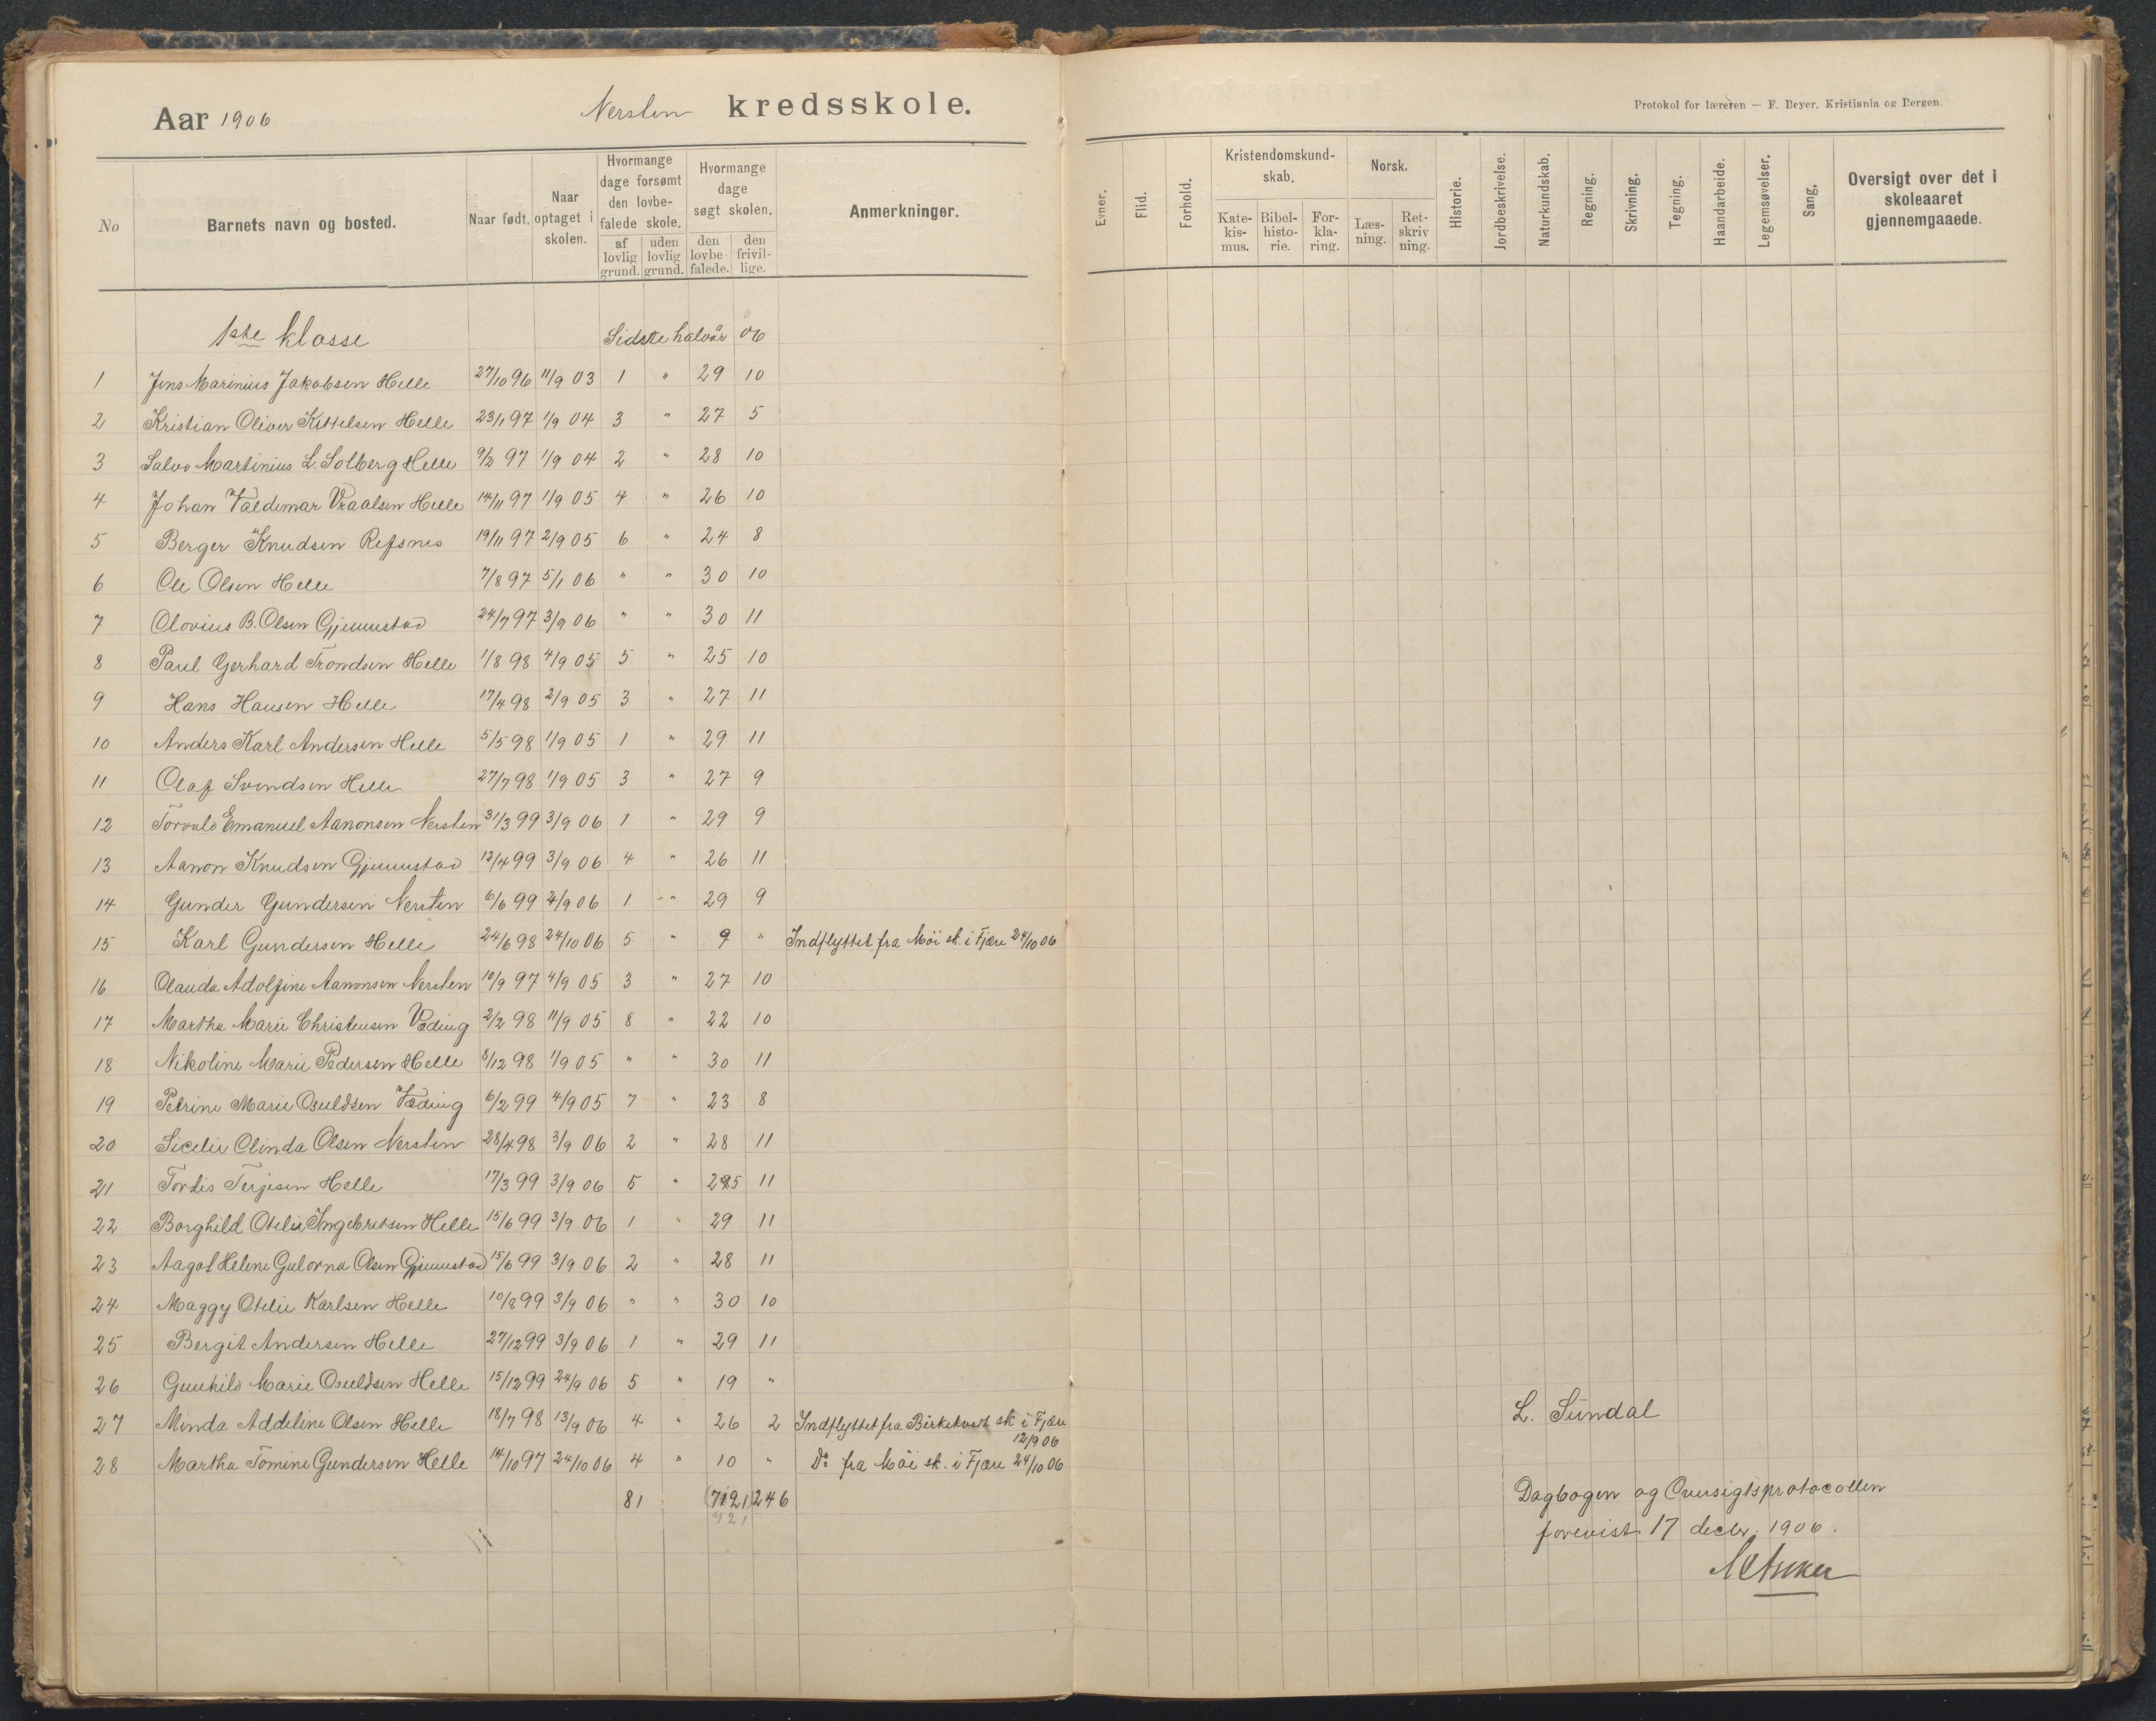 Aar 1906
Nersten kredsskole.
No
Barnets navn og bosted.
Naar født.
Naar optaget i skolen.
Hvormange dage forsømt den lovbefalede skole.
af lovlig grund.
uden lovlig grund.
Hvormange dage søgt skolen.
den lovbefalede.
den frivillige.
Anmerkninger.
1ste klasse Sidste halvår 06
1 Jens Marinius Jakobsen Helle 27/10 96 11/9 03 1 " 29 10
2 Kristian Oliver Kittelsen Helle 23/1 97 1/9 04 3 " 27 5
3 Salve Martinius L. Solberg Helle 9/2 97 1/9 04 2 " 28 10
4 Johan Valdemar Vraalsen Helle 14/11 97 1/9 05 4 " 26 10
5 Berger Knudsen Refsnes 19/11 97 2/9 05 6 " 24 8
6 Ole Olsen Helle 7/8 97 5/1 06 " " 30 10
7 Olovius B. Olsen Gjennestad 24/7 97 3/9 06 " " 30 11
8 Paul Gerhard Trondsen Helle 1/8 98 4/9 05 5 " 25 10
9 Hans Hansen Helle 17/4 98 2/9 05 3 " 27 11
10 Anders Karl Andersen Helle 5/5 98 1/9 05 1 " 29 11
11 Olaf Svendsen Helle 27/7 98 1/9 05 3 " 27 9
12 Torvald Emanuel Aanonsen Nersten 31/3 99 3/9 06 1 " 29 9
13 Aanon Knudsen Gjennestad 12/4 99 3/9 06 4 " 26 11
14 Gunder Gundersen Nersten 6/6 99 4/9 06 1 " 29 9
15 Karl Gundersen Helle 24/6 98 24/10 06 5 " 9 " Indflyttet fra Møi sk. i Fjære 24/10 06
16 Olauda Adolfine Aanonsen Nersten 10/9 97 4/9 05 3 " 27 10
17 Martha Marie Christensen Væding 2/2 98 11/9 05 8 " 22 10
18 Nikoline Marie Pedersen Helle 8/12 98 1/9 05 " " 30 11
19 Petrine Marie Osuldsen Væding 6/2 99 4/9 05 7 " 23 8
20 Sicelie Olinda Olsen Nersten 28/4 98 3/9 06 2 " 28 11
21 Tordis Terjesen Helle 17/3 99 3/9 06 5 " 25 11
22 Borghild Otelie Ingebretsen Helle 15/6 99 3/9 06 1 " 29 11
23 Aagot Helene Gulorna Olsen Gjennestad 15/6 99 3/9 06 2 " 28 11
24 Maggy Otelie Karlsen Helle 10/8 99 3/9 06 " " 30 10
25 Bergit Andersen Helle 27/12 99 3/9 06 1 " 29 11
26 Gunhild Marie Osuldsen Helle 15/12 99 24/9 06 5 " 19 "
27 Minda Addeline Olsen Helle 18/7 98 13/9 06 4 " 26 2 Indflyttet fra Birketveit sk i Fjære 12/9 06
28 Martha Tomine Gundersen Helle 14/10 97 24/10 06 4 " 10 " Do fra Møi sk. i Fjære 24/10 06
81 721 246
721
Protokol for læreren — F. Beyer, Kristiania og Bergen.
Evner.
Flid.
Forhold.
Kristendomskundskab.
Katekismus.
Bibelhistorie.
Forklaring.
Norsk.
Læsning.
Retskrivning.
Historie.
Jordbeskrivelse.
Naturkundskab.
Regning.
Skrivning.
Tegning.
Haandarbeide.
Legemsøvelser.
Sang.
Oversigt over det i skoleaaret gjennemgaaede.
L. Sundal
Dagbogen og Oversigtsprotocollen
forevist 17 decbr. 1906.